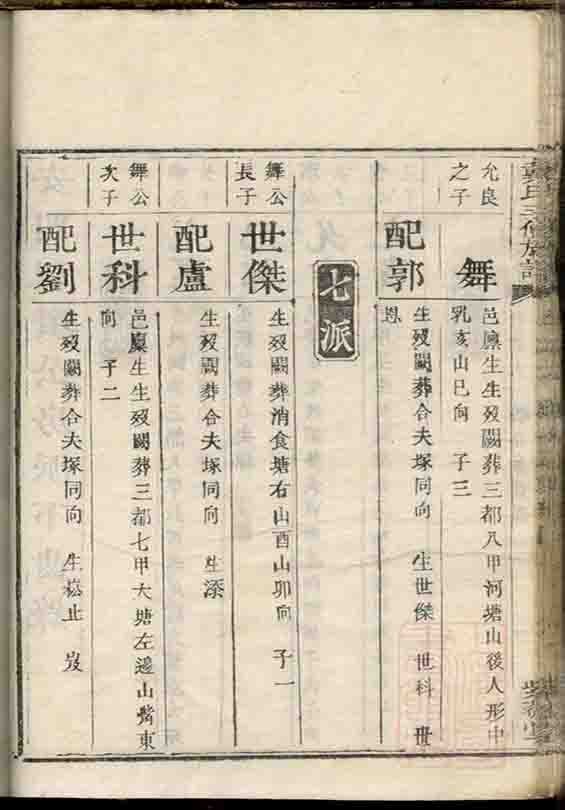 允良之子
舞
邑廩生生歿闕葬三都八甲河塘山後人形中
乳亥山巳向 子三
配郭
生歿闕葬合夫塚同向 生世傑 世科 世
恩
七派
舞公長子
世傑
生歿闕葬消食塘右山酉山卯向 子一
配盧
生歿闕葬合夫塚同向 生溙
舞公次子
世科
邑廩生生歿闕葬三都七甲大塘左邊山觜東
向 子二
配劉
生歿闕葬合夫塚同向 生崧止 岌